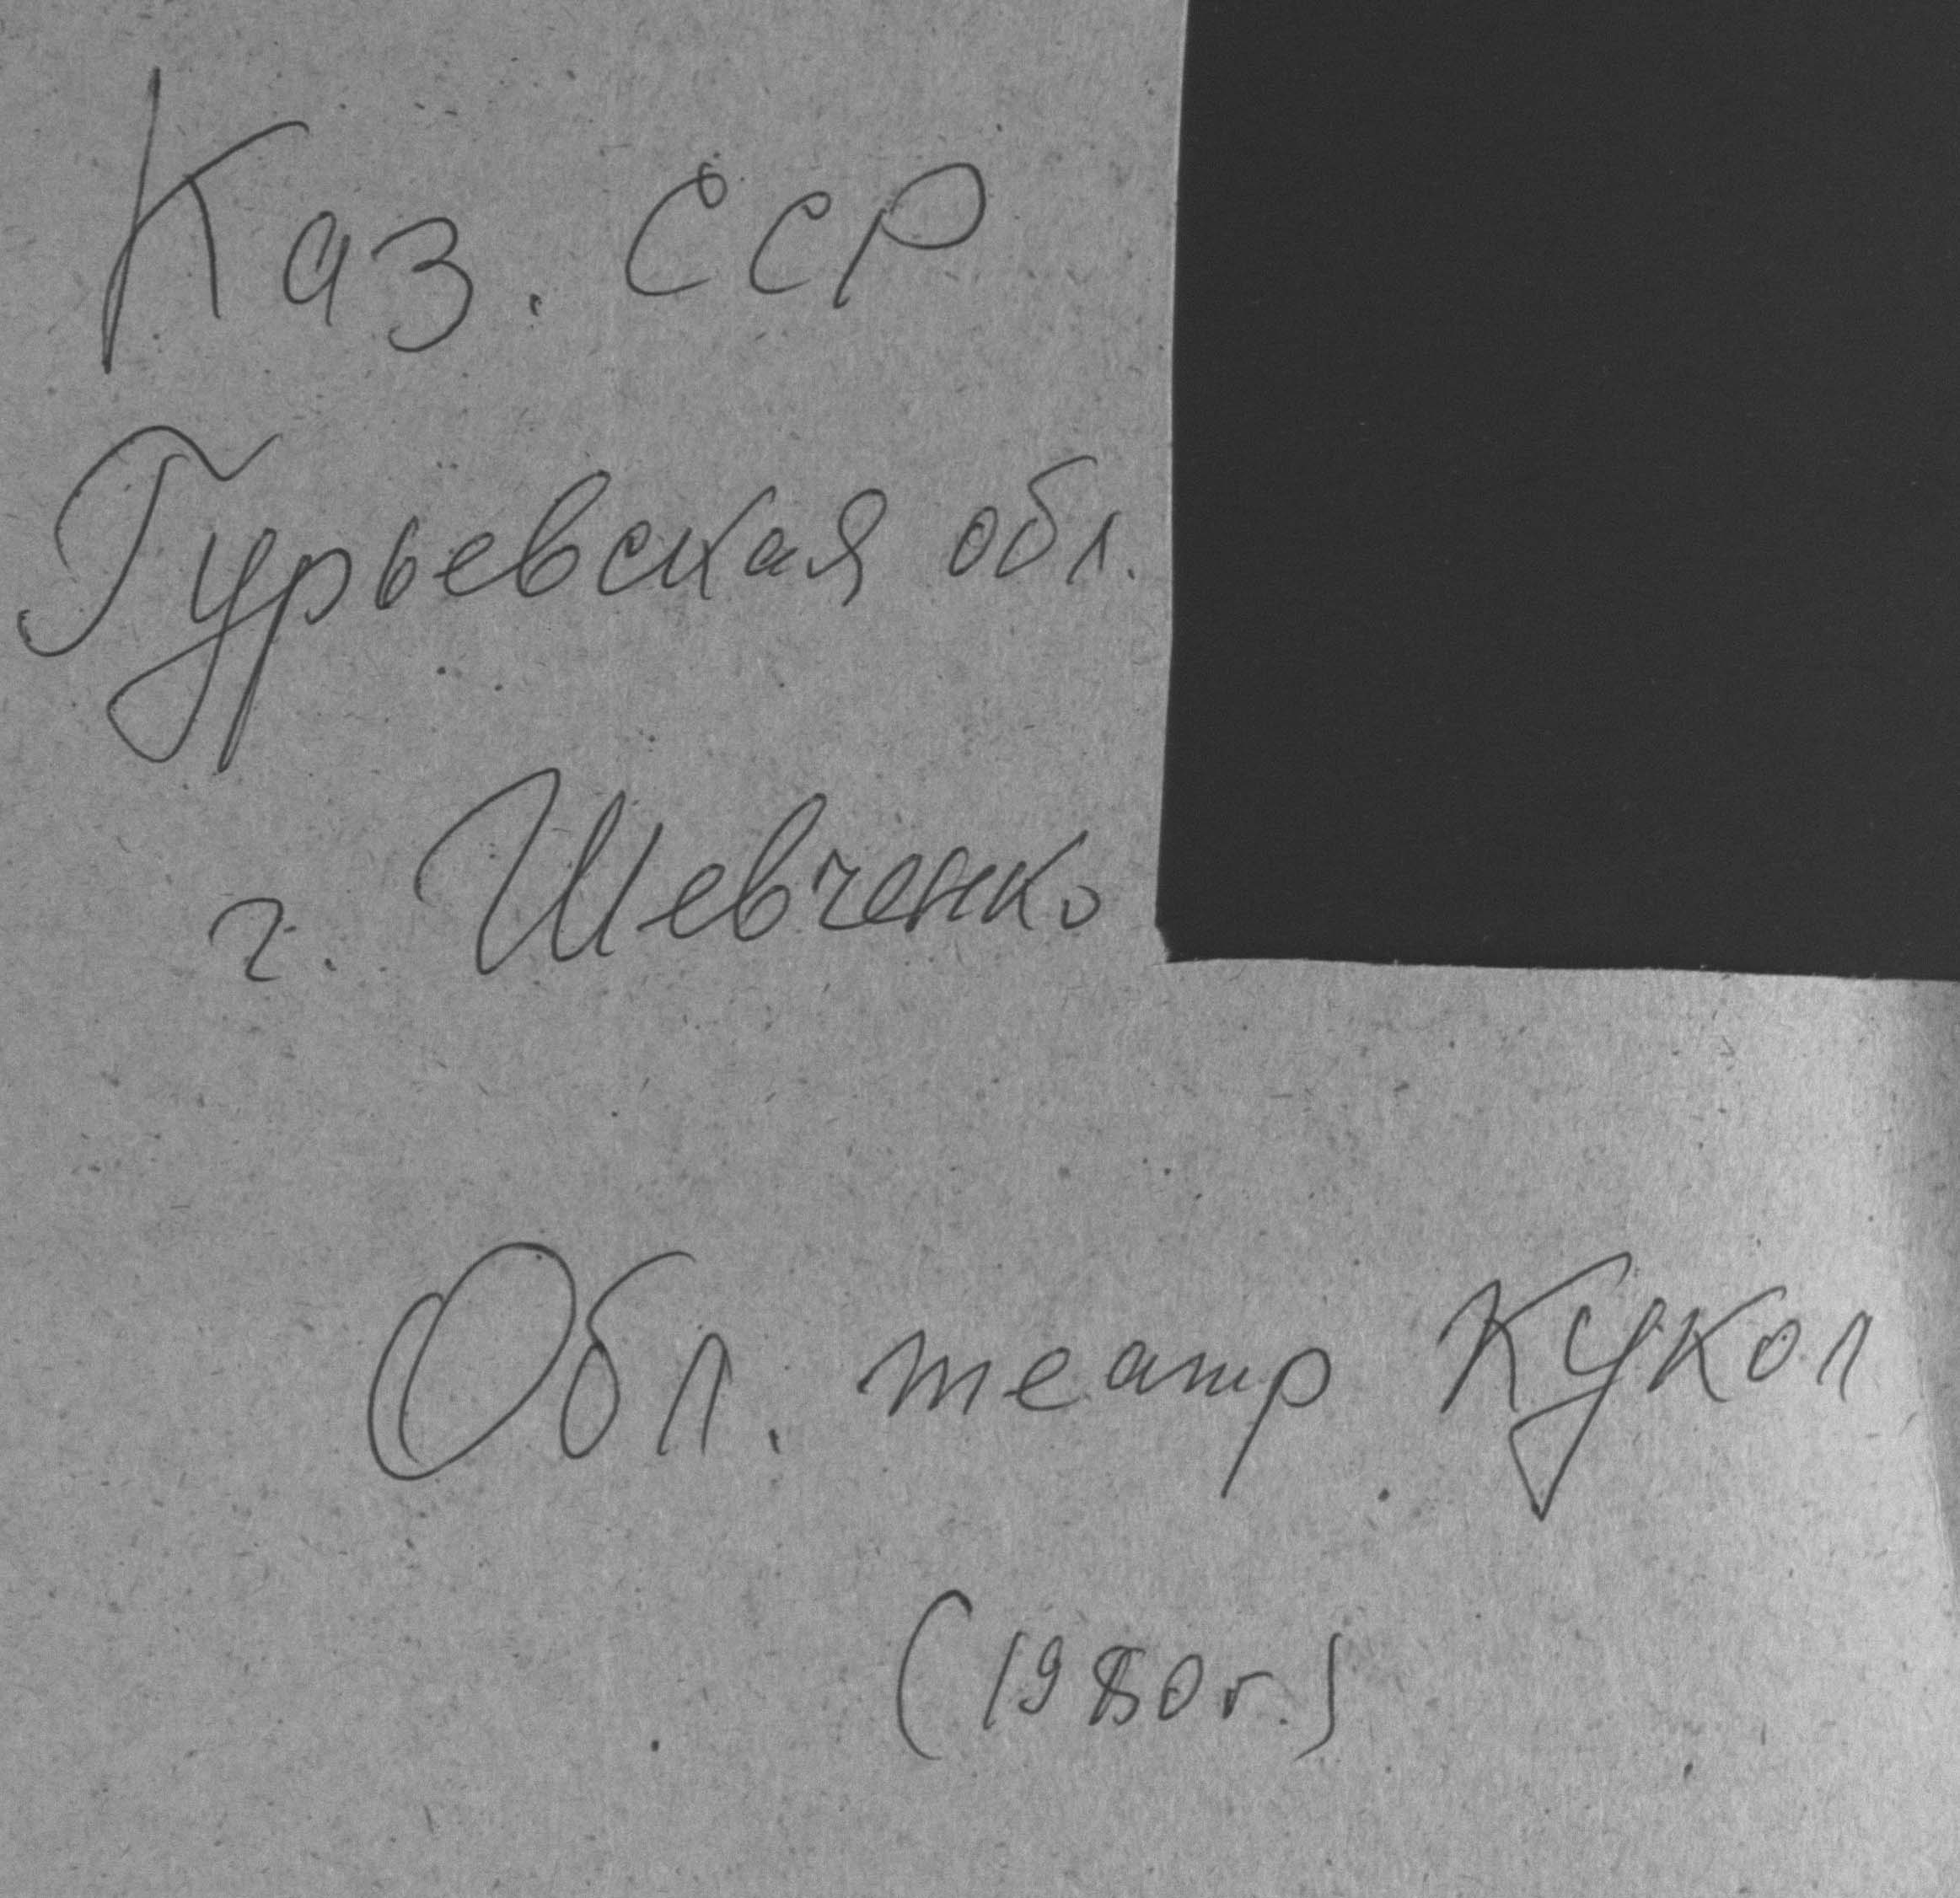 Каз. ССР
Гурьевская обл.
г. Шевченко
Обл. театр кукол
(1980г.)